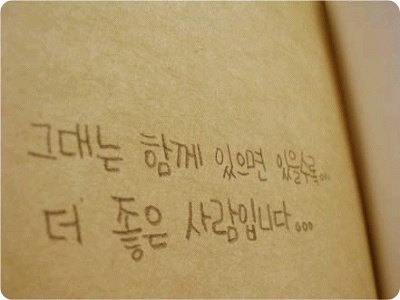 그대는 함께 있으면 있을수록...
더 좋은 사람입니다...